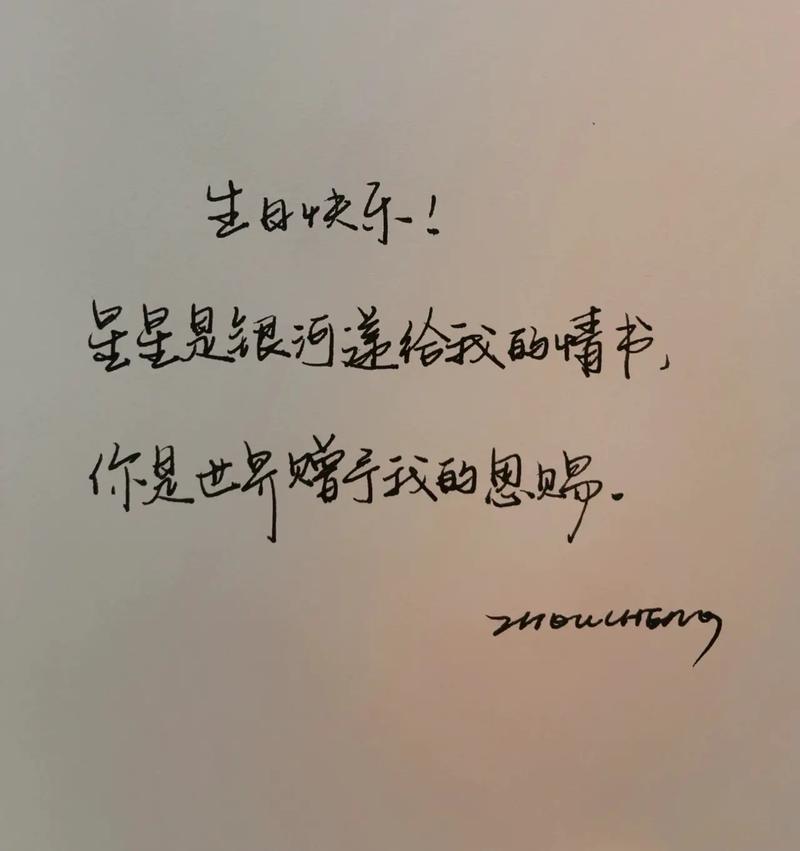 生日快乐!
星星是银河递给我的情书,
你是世界赠予我的恩赐.
ZHOUCHENG